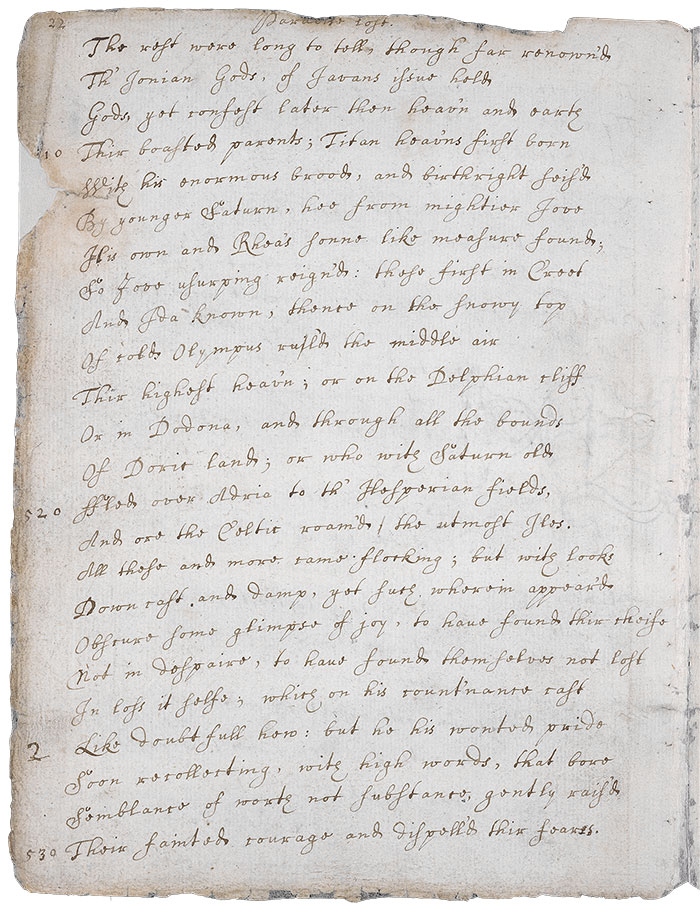 22 Paradise lost.
The rest were long to tell, though far renown'd
Th' Ionian Gods, of Javans issue held
Gods, yet confest later then heav'n and earth
10 Thir boasted parents; Titan heav'ns first born
With his enormous brood, and birthright seis'd
By younger Saturn, hee from mightier Jove
His own and Rhea's sonne like measure found;
So Jove usurping reign'd: these first in Creet
And Ida known, thence on the snowy top
Of cold Olympus rul'd the middle air
Thir highest heav'n; or on the Delphian cliff
Or in Dodona, and through all the bounds
Of Doric land; or who with Saturn old
520 ffled over Adria to th' Hesperian fields,
And ore the Celtic roam'd the utmost Iles.
All these and more came flocking; but with looks
Down cast and damp, yet such wherein appear'd
Obscure some glimpse of joy, to have found thir cheife
Not in despaire, to have found themselves not lost
In loss it selfe; which on his count'nance cast
2 Like doubtfull hew: but he his wonted pride
Soon recollecting, with high words, that bore
Semblance of worth not substance, gently rais'd
530 Their fainted courage and dispell'd thir feares.